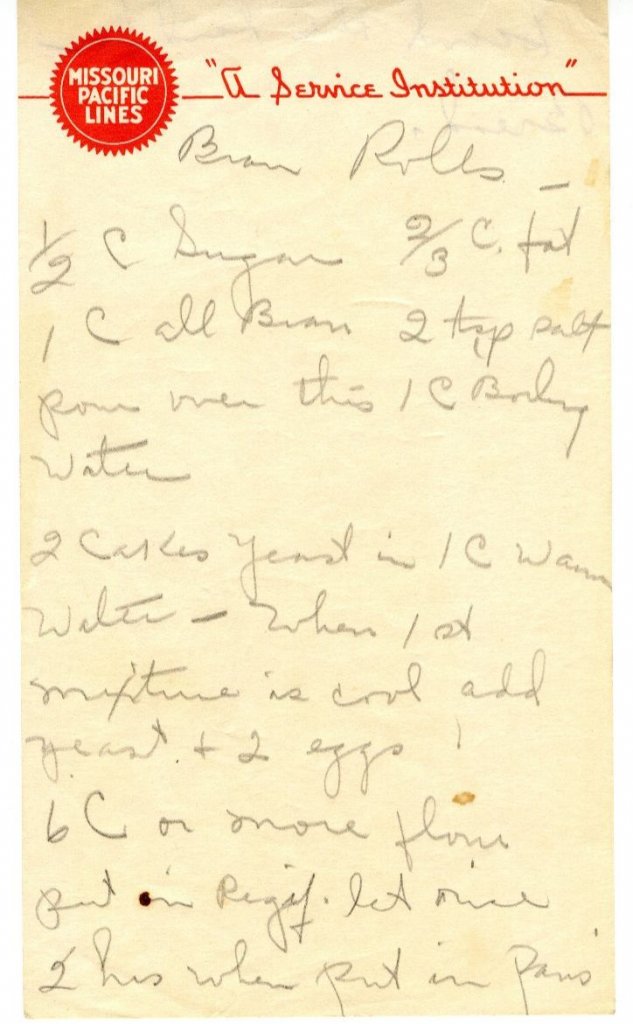 MISSOURI
PACIFIC
LINES
"A Service Institution"
Bran Rolls –
1/2 C Sugar 2/3 C. fat
1 C all Bran 2 tsp salt
pour over this 1 C Boiling
Water
2 Cakes Yeast in 1 C Warm
Water – When 1 st
mixture is cool add
yeast + 2 eggs
6 C or more flour
put in Regif. let rise
2 hrs when put in Pans